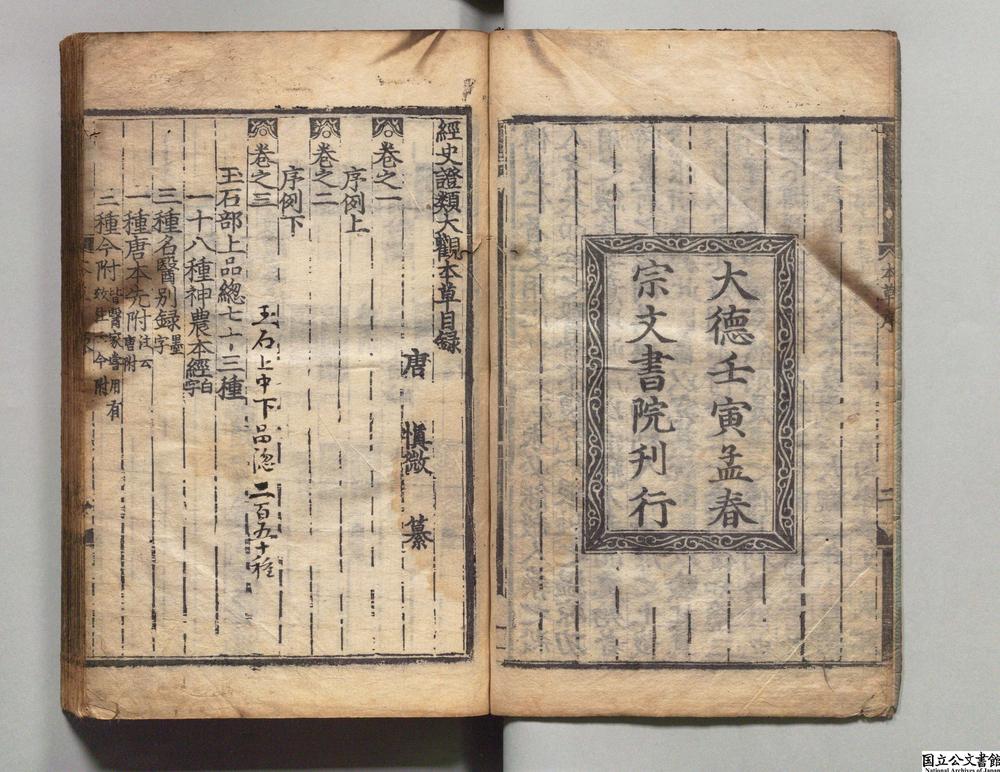 大德壬寅孟春
宗文書院刊行
經史證類大觀本草目録
唐 慎微 纂
卷之一
序例上
卷之二
序例下
卷之三
玉石上中下品總二百五十種
玉石部上品總七十三種
一十八種神農本經白字
三種名醫别録墨字
一種唐本先附注云唐附
二種今附皆醫家嘗用有效注云今附
国立公文書館
National Archives of Japan